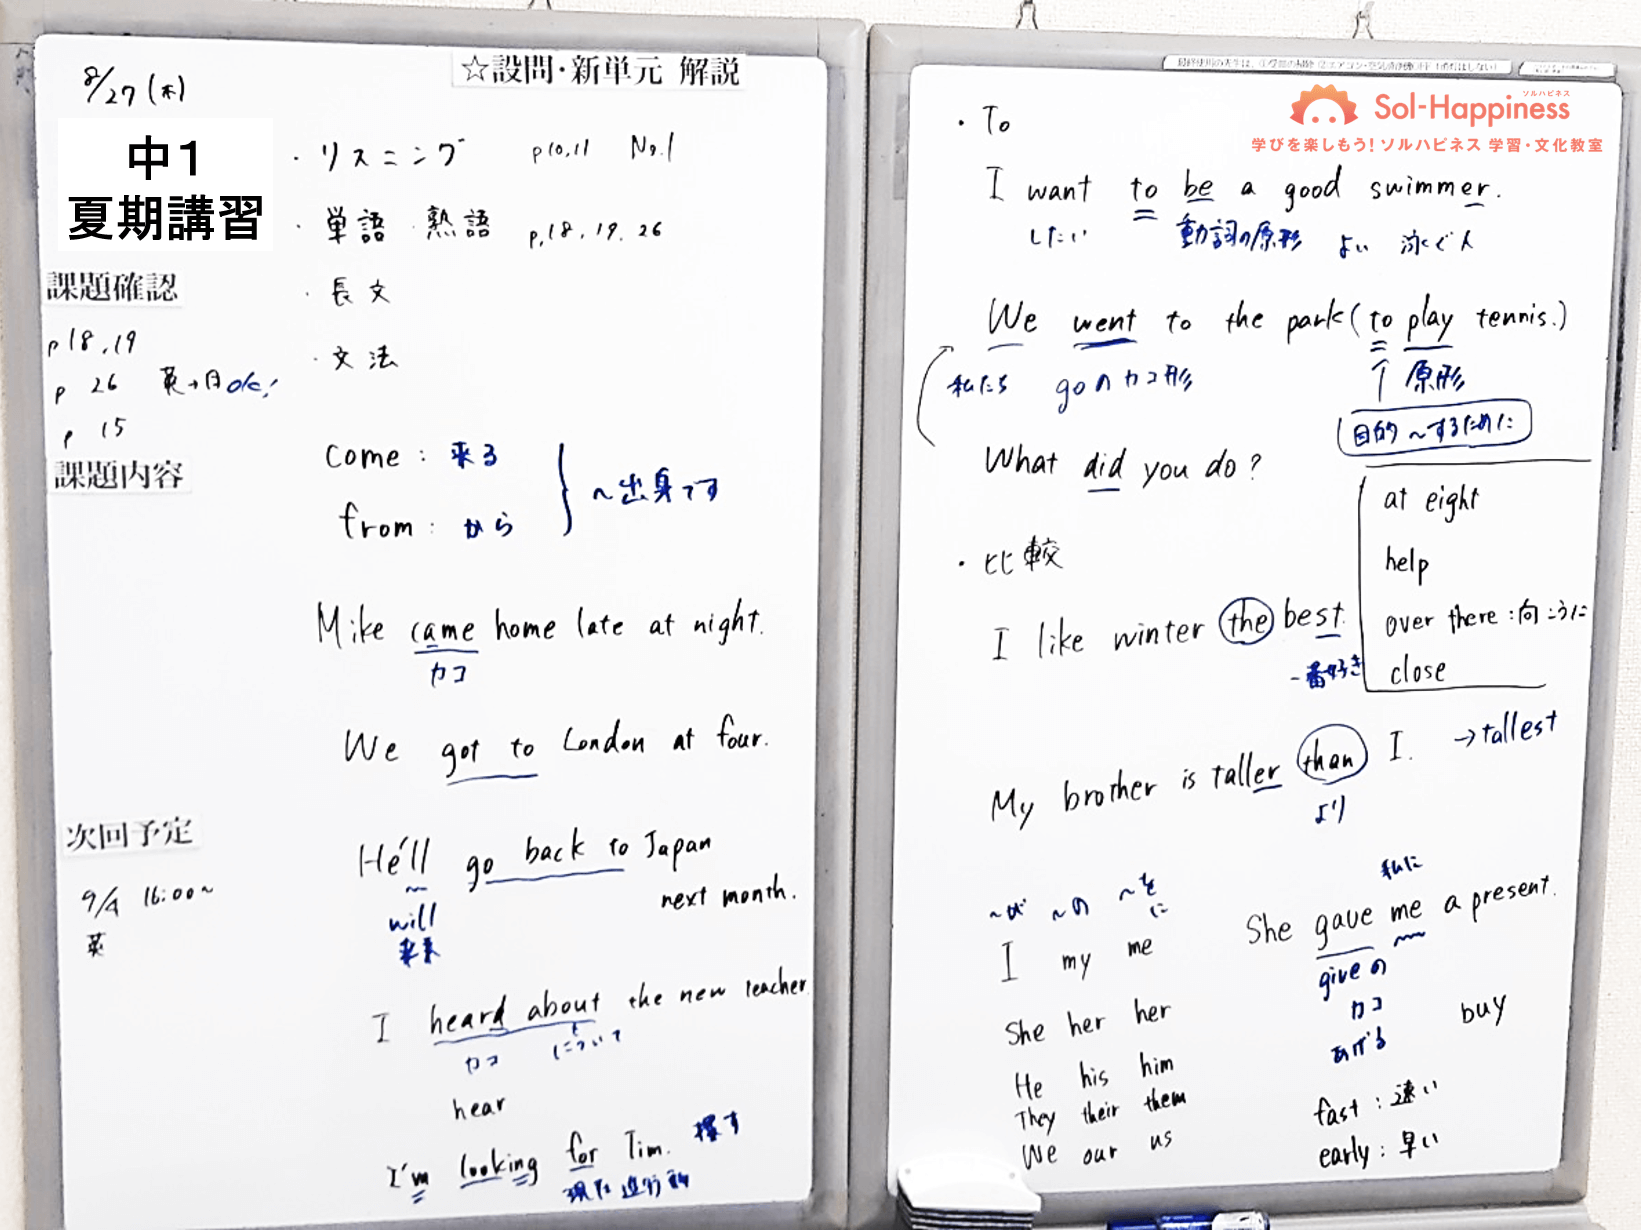 8/27(木)
☆設問・新単元 解説
中1
夏期講習
・リスニング p10,11 No.1
・単語・熟語 p.18,19,26
・長文
・文法
課題確認
p18,19
p 26 英→日ok!
p 15
課題内容
come : 来る
from : から
～出身です
Mike came home late at night.
カコ
We got to London at four.
次回予定
9/4 16:00～
英
He'll go back to Japan
next month.
will
未来
I heard about the new teacher.
カコ について
hear
I'm looking for Tim. 探す
現在進行形
Sol-Happiness
ソルハピネス
学びを楽しもう! ソルハピネス 学習・文化教室
・To
I want to be a good swimmer.
したい 動詞の原形 よい 泳ぐ人
We went to the park (to play tennis.)
私たち goのカコ形 ↑ 原形
目的 ～するために
What did you do?
at eight
help
over there : 向こうに
close
・比較
I like winter the best.
一番好き
My brother is taller than I. →tallest
より
～が ～の ～を
に
I my me
She her her
He his him
They their them
We our us
私に
She gave me a present.
giveの
カコ
あげる
buy
fast : 速い
early : 早い